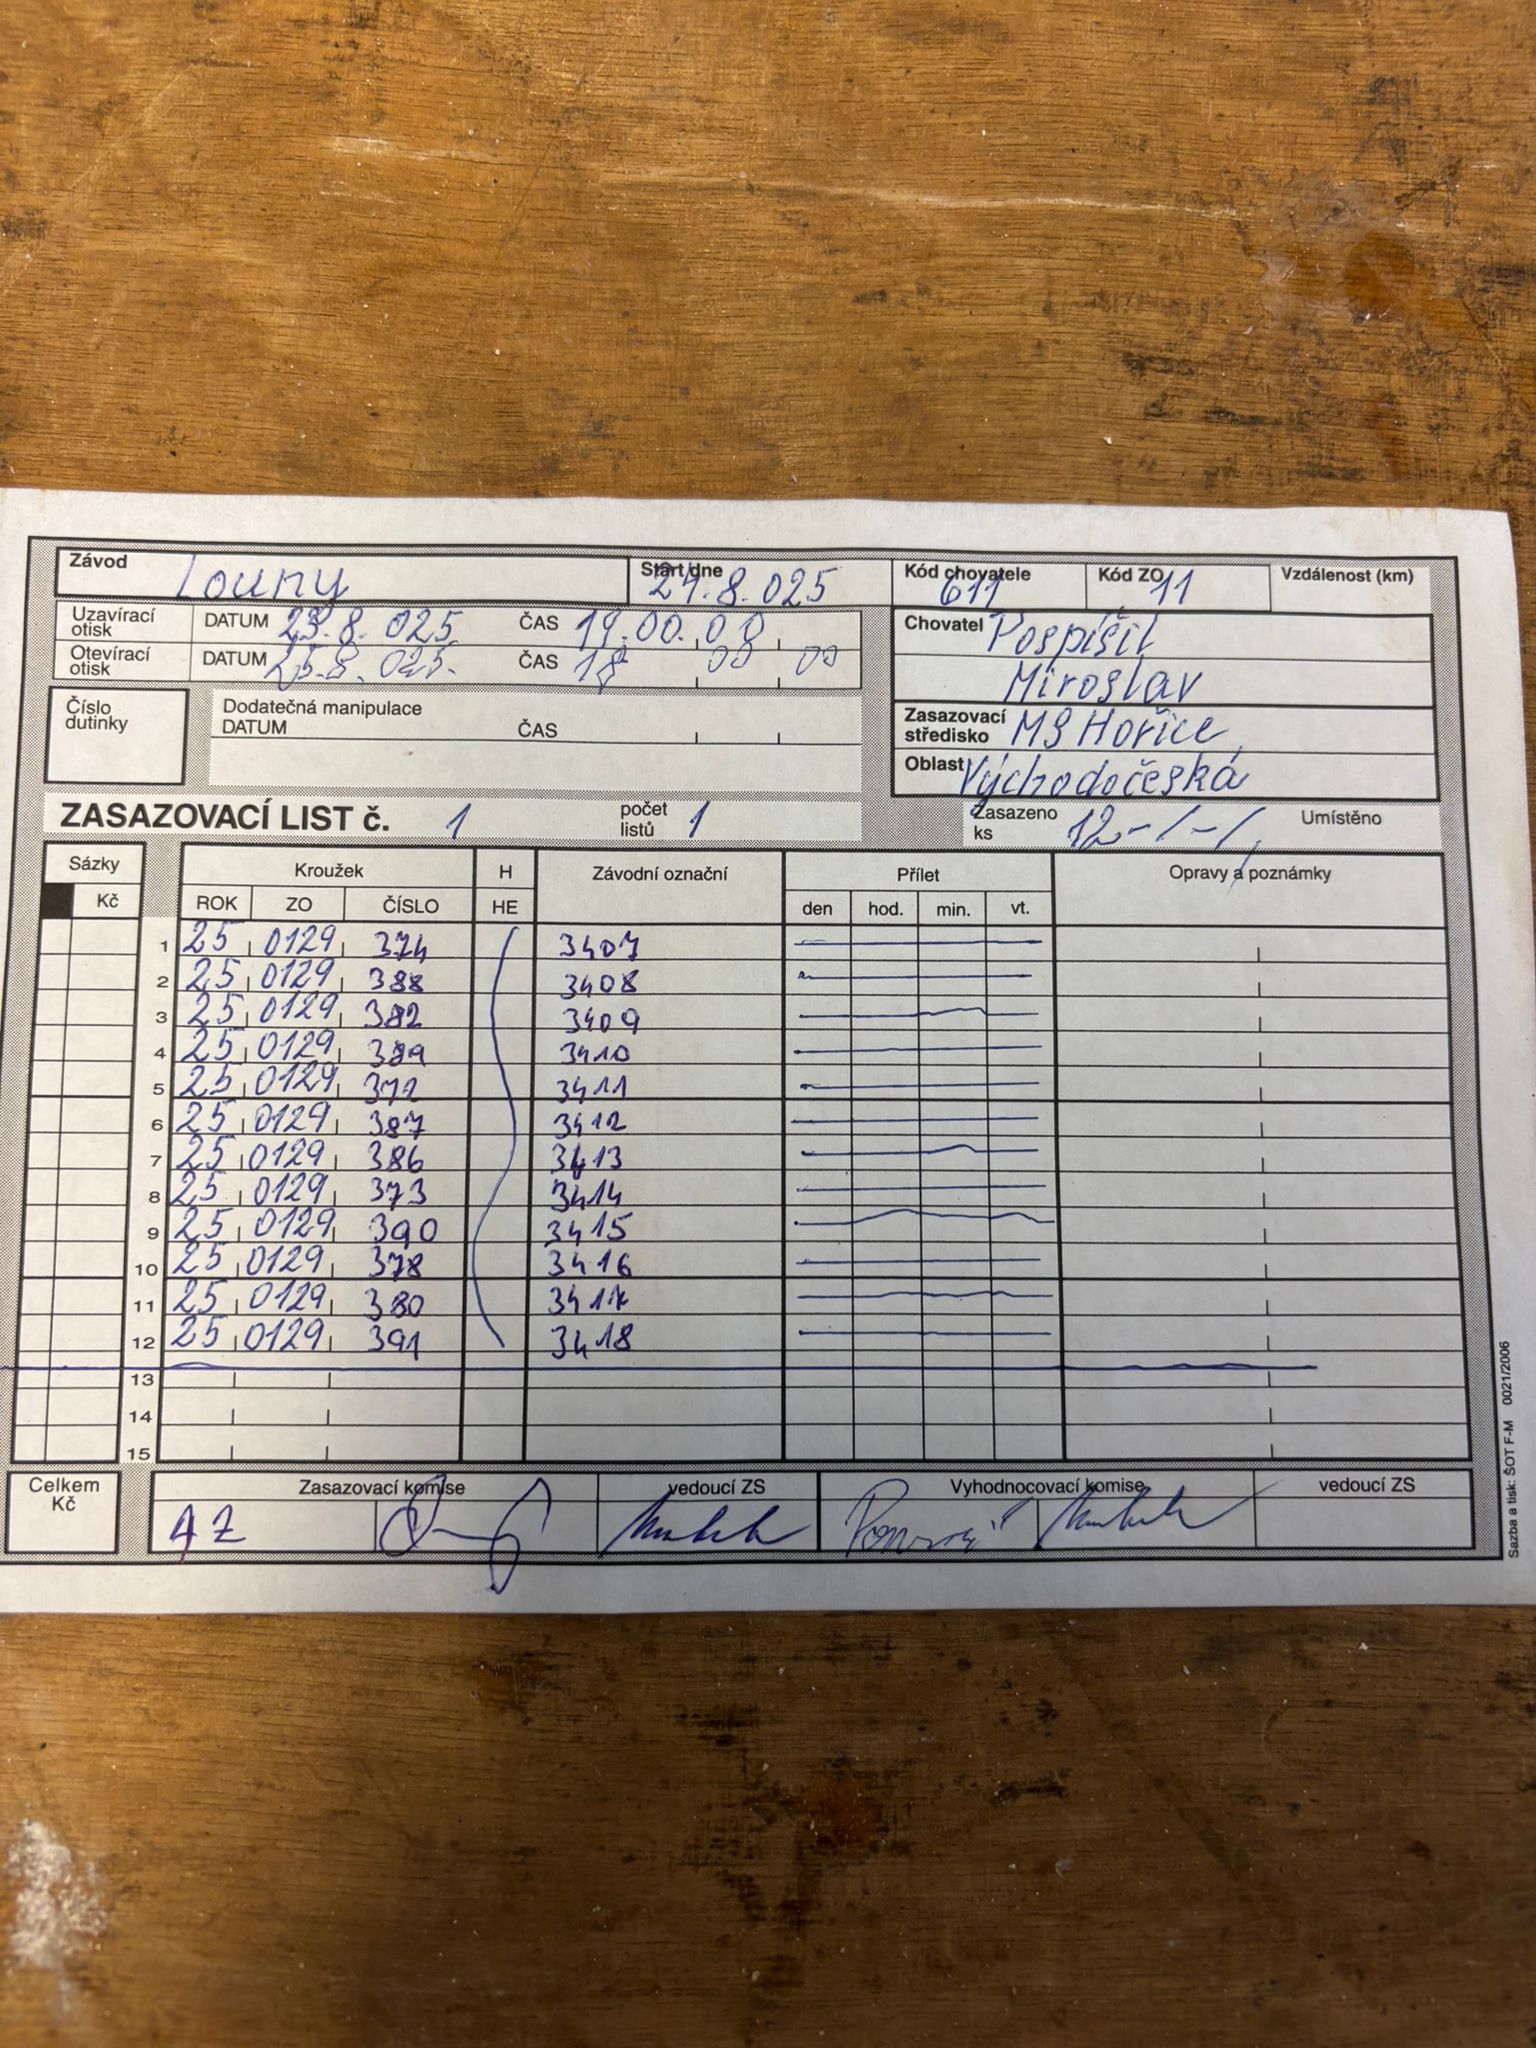 Závod Louny Start dne 24.8.025 Kód chovatele 611 Kód ZO 11 Vzdálenost (km)
Uzavírací otisk DATUM 23.8.025 ČAS 19.00.00
Otevírací otisk DATUM 25.8.025. ČAS 18 00 00
Chovatel Pospíšil
Miroslav
Číslo dutinky Dodatečná manipulace
DATUM ČAS
Zasazovací středisko MS Hořice
Oblast Východočeská
ZASAZOVACÍ LIST č. 1 počet listů 1 Zasazeno ks 12-/-/ Umístěno
Sázky Kroužek H Závodní označní Přílet Opravy a poznámky
Kč ROK ZO ČÍSLO HE den hod. min. vt.
1 25 0129 374 3407
2 25 0129 388 3408
3 25 0129 382 3409
4 25 0129 389 3410
5 25 0129 372 3411
6 25 0129 387 3412
7 25 0129 386 3413
8 25 0129 373 3414
9 25 0129 390 3415
10 25 0129 378 3416
11 25 0129 380 3417
12 25 0129 391 3418
13
14
15
Celkem Kč Zasazovací komise vedoucí ZS Vyhodnocovací komise vedoucí ZS
Sazba a tisk: ŠOT F-M 0021/2006